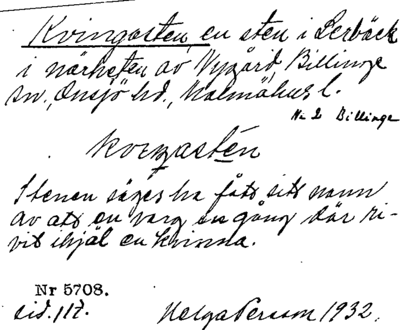 Kvingasten, en sten i Lerbäck
i närheten av Nygård, Billinge
sn., Onsjö hd., Malmöhus l.
No 2 Billinge
kvengastén
Stenen säges ha fått sitt namn
av att en varg en gång där ri-
vit ihjäl en kvinna.
Nr 5708.
sid. 117.
Helga Persson 1932.